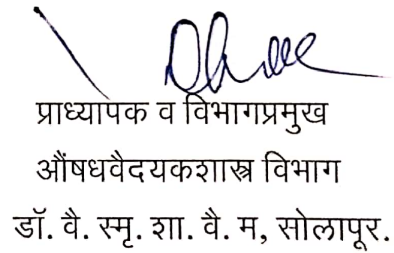 प्राध्यापक व विभागप्रमुख
औंषधवैदयकशास्त्र विभाग
डॉ. वै. स्मृ. शा. वै. म, सोलापूर.